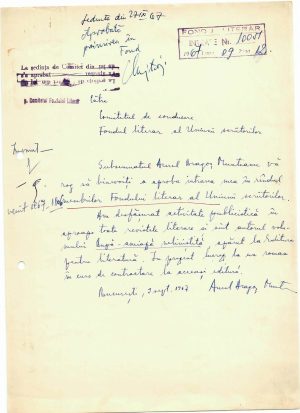 Ședința din 27 IX 67
Aprobată
primirea în
Fond
FONDUL LITERAR
INTRARE Nr. 10051
1967 luna 09 ziua 12
La ședința de Comitet din
s-a aprobat
p. Comitetul Fondului Literar
Către
Comitetul de conducere
Fondul literar al Uniunii scriitorilor
Subsemnatul Aurel Dragoș Munteanu vă
rog să binevoiți a aproba intrarea mea în rîndul
membrilor Fondului literar al Uniunii scriitorilor.
Am desfășurat activitate publicistică în
aproape toate revistele literare și sînt autorul volu-
mului După-amiază neliniștită, apărut la Editura
pentru literatură. În prezent lucrez la un roman
în curs de contractare la aceeași editură.
București, 9 sept. 1967
Aurel Dragoș Munteanu